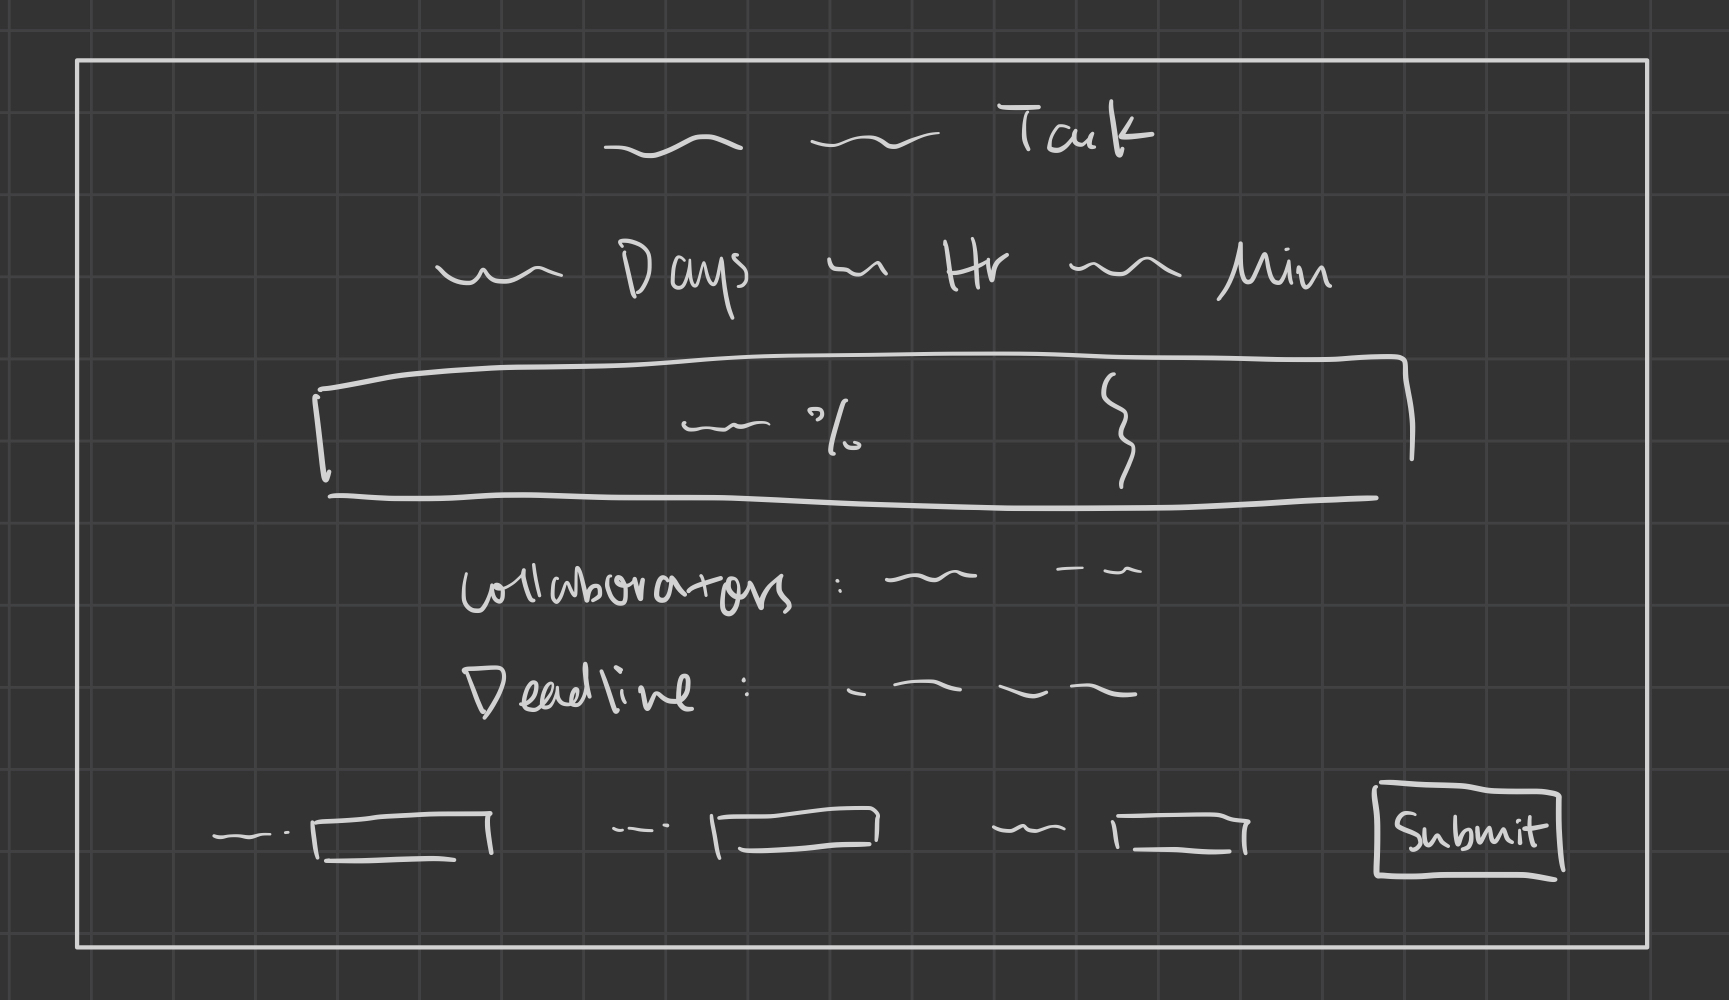 Task
Days Hr Min
%
Collaborators :
Deadline :
Submit